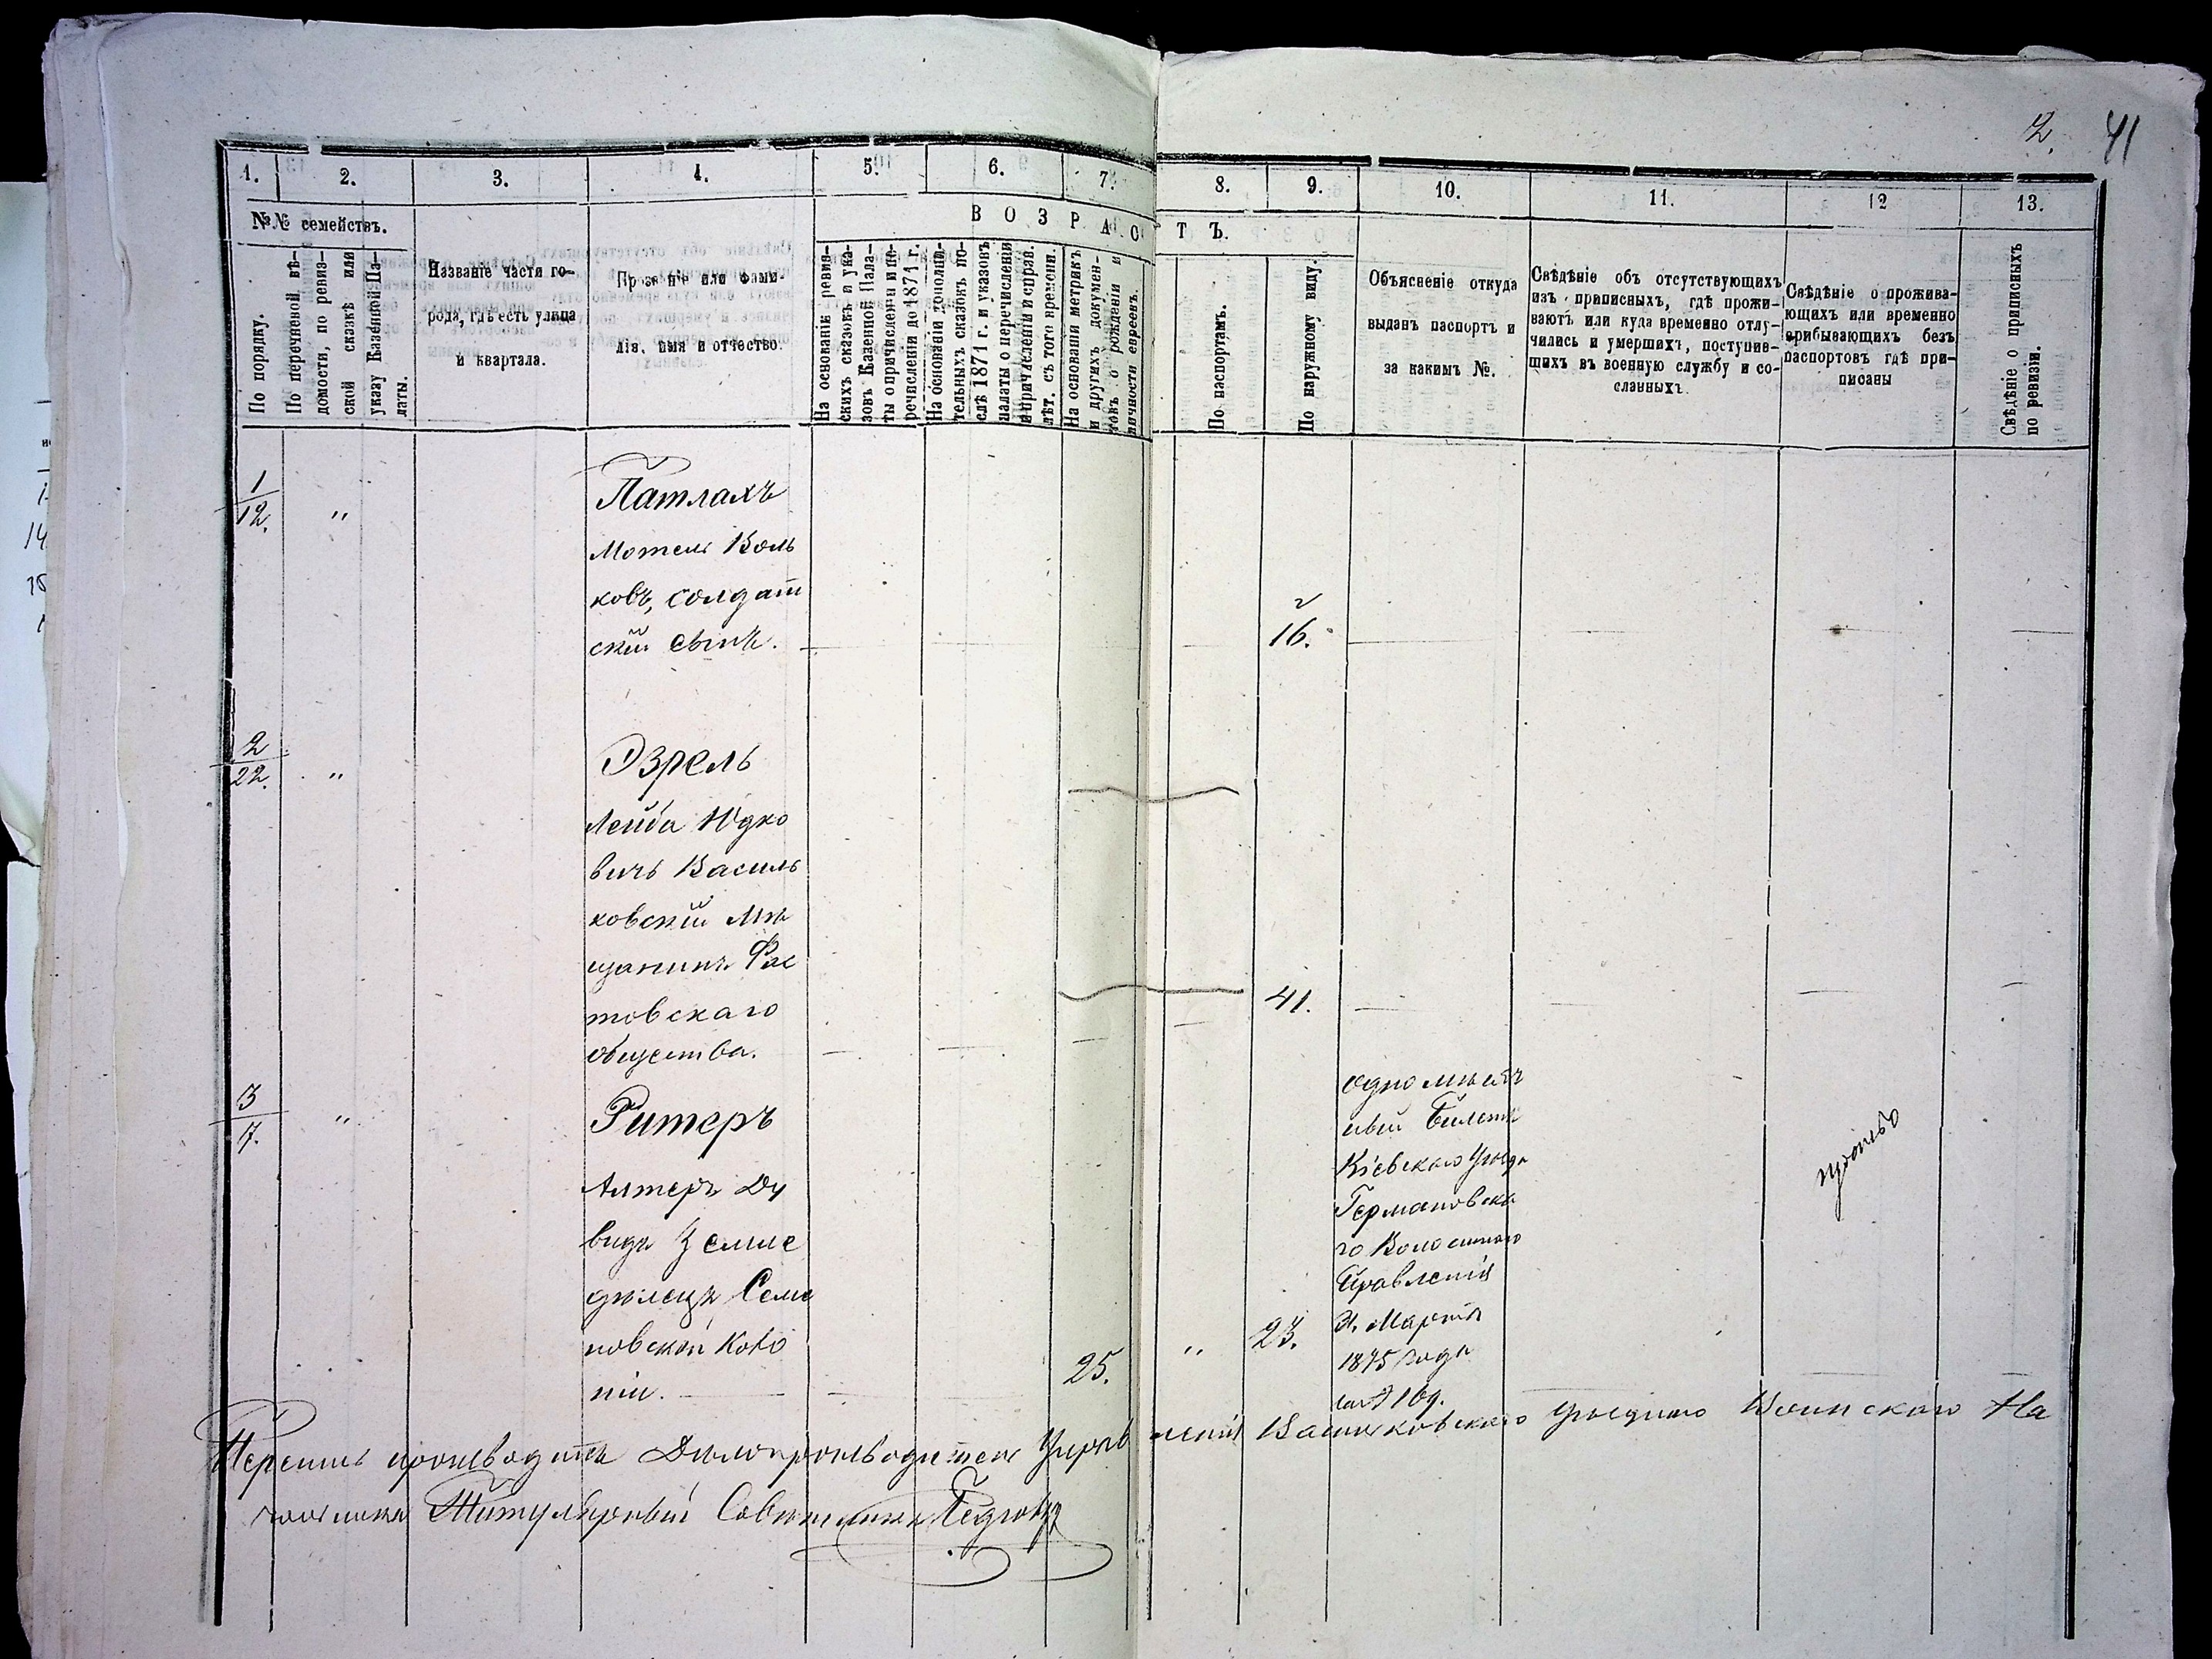 2. 41
1. 2. 3. 4. 5. 6. 7. 8. 9. 10. 11. 12 13.
№№ семействъ.
ВОЗРАСТЪ.
По порядку.
По перечневой вѣ-
домости, по ревиз-
ской сказкѣ или
указу Казенной Па-
латы.
Названіе части го-
рода, гдѣ есть улица
и квартала.
Прозваніе или фами-
лія, имя и отчество.
На основаніи ревиз-
скихъ сказокъ и ука-
зовъ Казенной Пала-
ты о причисленіи и пе-
речисленіи до 1871 г.
На основаніи дополни-
тельныхъ сказокъ по-
слѣ 1871 г. и указовъ
палаты о перечисленіи
и причисленіи и справ.
лѣт. съ того времени.
На основаніи метрикъ
и другихъ докумен-
товъ о рожденіи и
личности евреевъ.
По паспортамъ.
По наружному виду.
Объясненіе откуда
выданъ паспортъ и
за какимъ №.
Свѣдѣніе объ отсутствующихъ
изъ приписныхъ, гдѣ прожи-
ваютъ или куда временно отлу-
чились и умершихъ, поступив-
шихъ въ военную службу и со-
сланныхъ
Свѣдѣніе о прожива-
ющихъ или временно
прибывающихъ безъ
паспортовъ гдѣ при-
писаны
Свѣдѣніе о приписныхъ
по ревизіи.
1
12. "
Патлахъ
Мотель Воль
ковъ, солдат
скій сынъ.
16.
2
22. "
Эзрель
Лейба Юдко
вичъ Василь
ковскій мѣ
щанинъ Фас
товскаго
общества.
41.
3
7. "
Ритеръ
Алтеръ Ду
видъ Земле
дѣлецъ Семе
новской Коло
ніи.
25. " 23.
одномѣсяч
ный билетъ
Кіевскаго Уѣзда
Германовска
го Волостного
Правленія
31. Марта
1875 года
за № 169.
Перепись производилъ Дѣлопроизводитель Управленія Васильковскаго Уѣзднаго Воинскаго На
чальника Титулярный Совѣтникъ